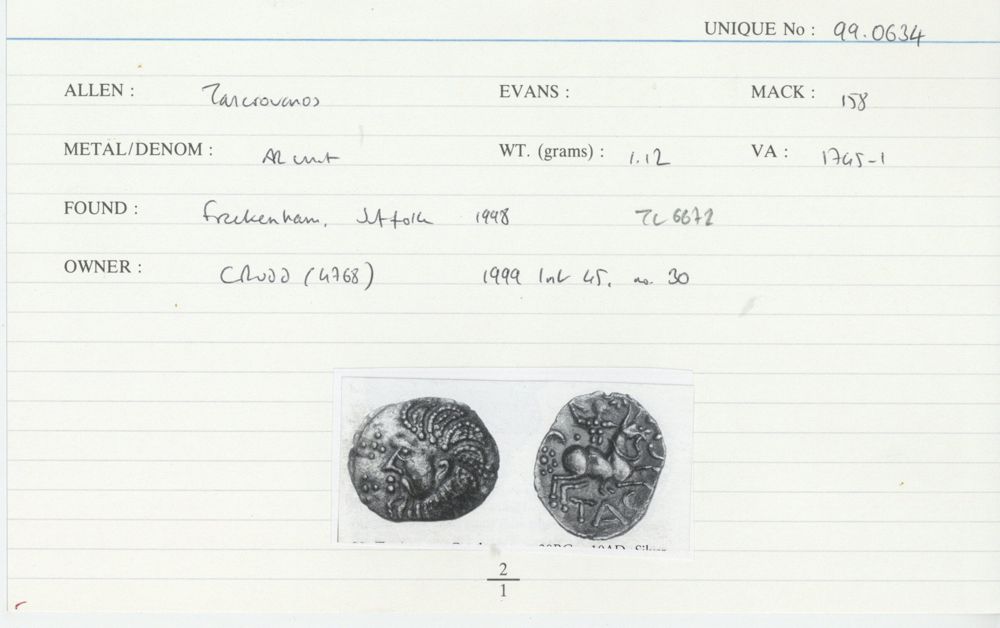 UNIQUE No : 99.0634
ALLEN : Tasciovanos EVANS : MACK : 158
METAL/DENOM : AR unit WT. (grams) : 1.12 VA : 1745-1
FOUND : Freckenham, Suffolk 1998 TL 6672
OWNER : CRUDD (4768) 1999 list 45, no. 30
TAC
2
1